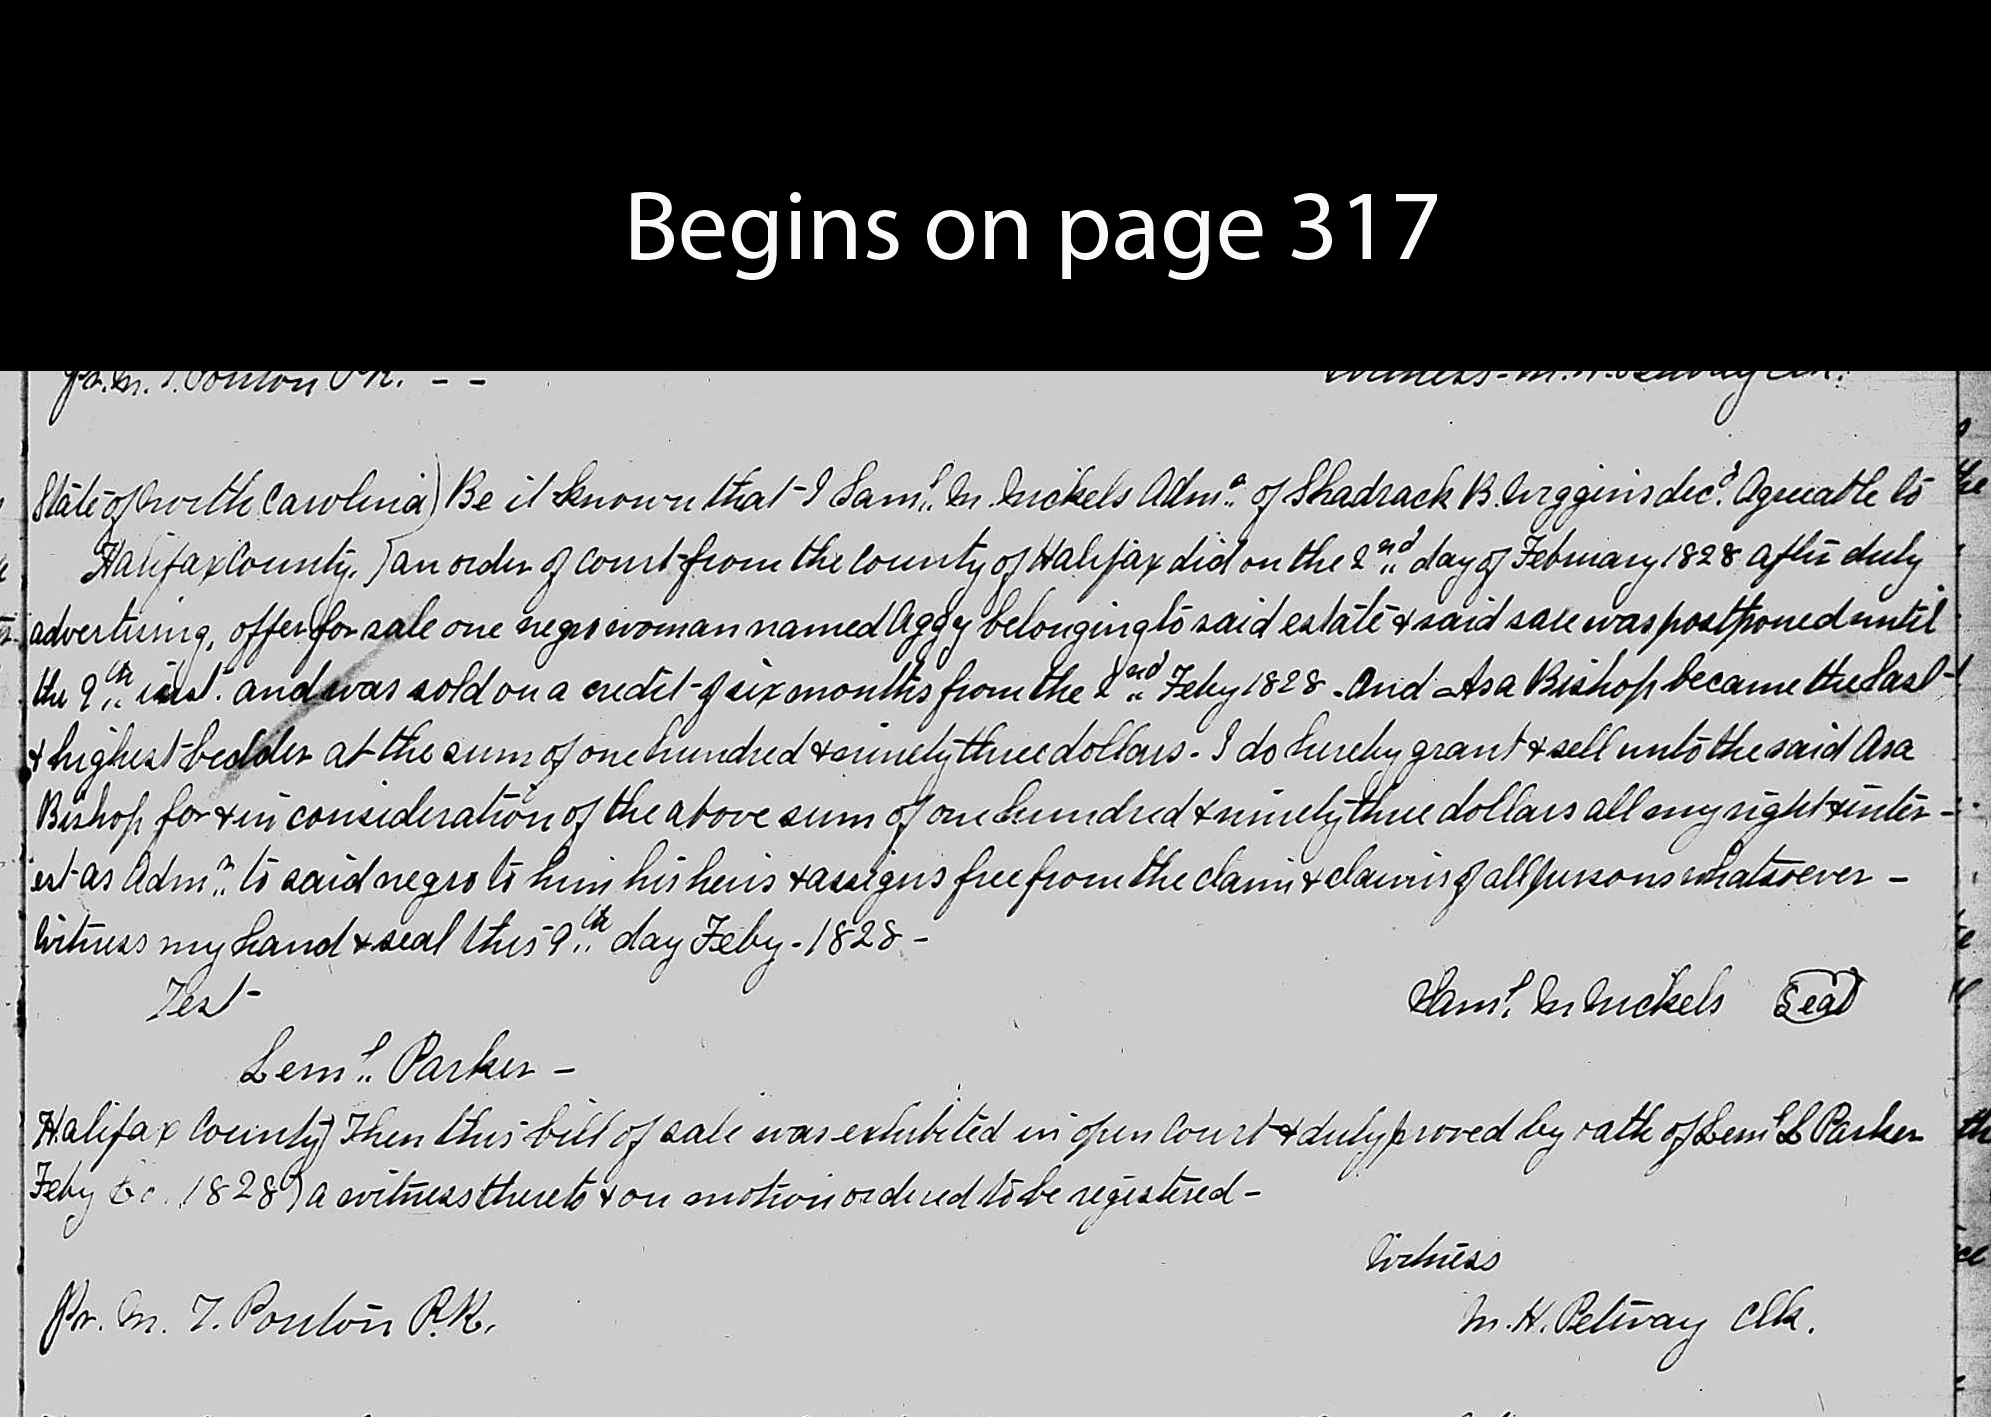 Begins on page 317
Pr. M. T. Ponton P.R. - -
Witness - M. H. Petway Clk.
State of North Carolina) Be it known that I Saml. M. Nickels Admr. of Shadrack B. Wiggins decd. Agreeable to
Halifax County. ) an order of court from the County of Halifax did on the 2nd day of February 1828 after duly
advertising, offer for sale one negro woman named Aggy belonging to said estate & said sale was postponed until
the 9th inst. and was sold on a credit of six months from the 2nd Feby 1828. And Asa Bishop became the last
& highest bidder at the sum of one hundred & ninety three dollars - I do hereby grant & sell unto the said Asa
Bishop for & in consideration of the above sum of one hundred & ninety three dollars all my right & inter-
est as Admr. to said negro to him his heirs & assigns free from the claim & claims of all persons whatsoever -
Witness my hand & seal this 9th day Feby - 1828 -
Test
Saml. M Nickels Seal
Leml. Parker -
Halifax County) Then this bill of sale was exhibited in open Court & duly proved by oath of Leml L Parker
Feby 1828) a witness thereto & on motion ordered to be registered -
Witness
Pr. M. T. Ponton P.R.
M. H. Petway Clk.